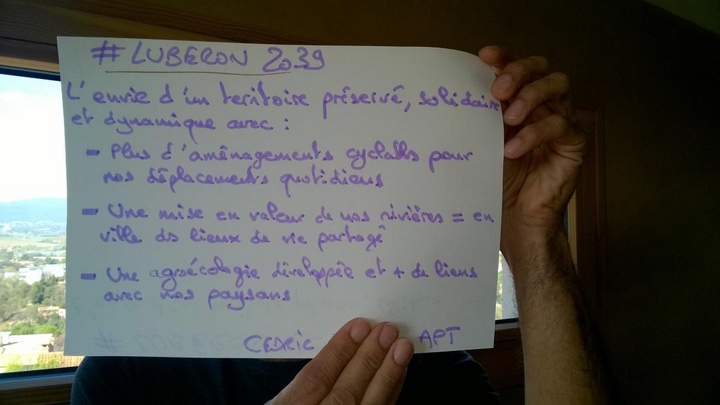 # LUBERON 2039
L'envie d'un territoire préservé, solidaire
et dynamique avec :
- Plus d'aménagements cyclables pour
nos déplacements quotidiens
- Une mise en valeur de nos rivières = en
ville des lieux de vie partagé
- Une agroécologie développée et + de liens
avec nos paysans
CEDRIC APT